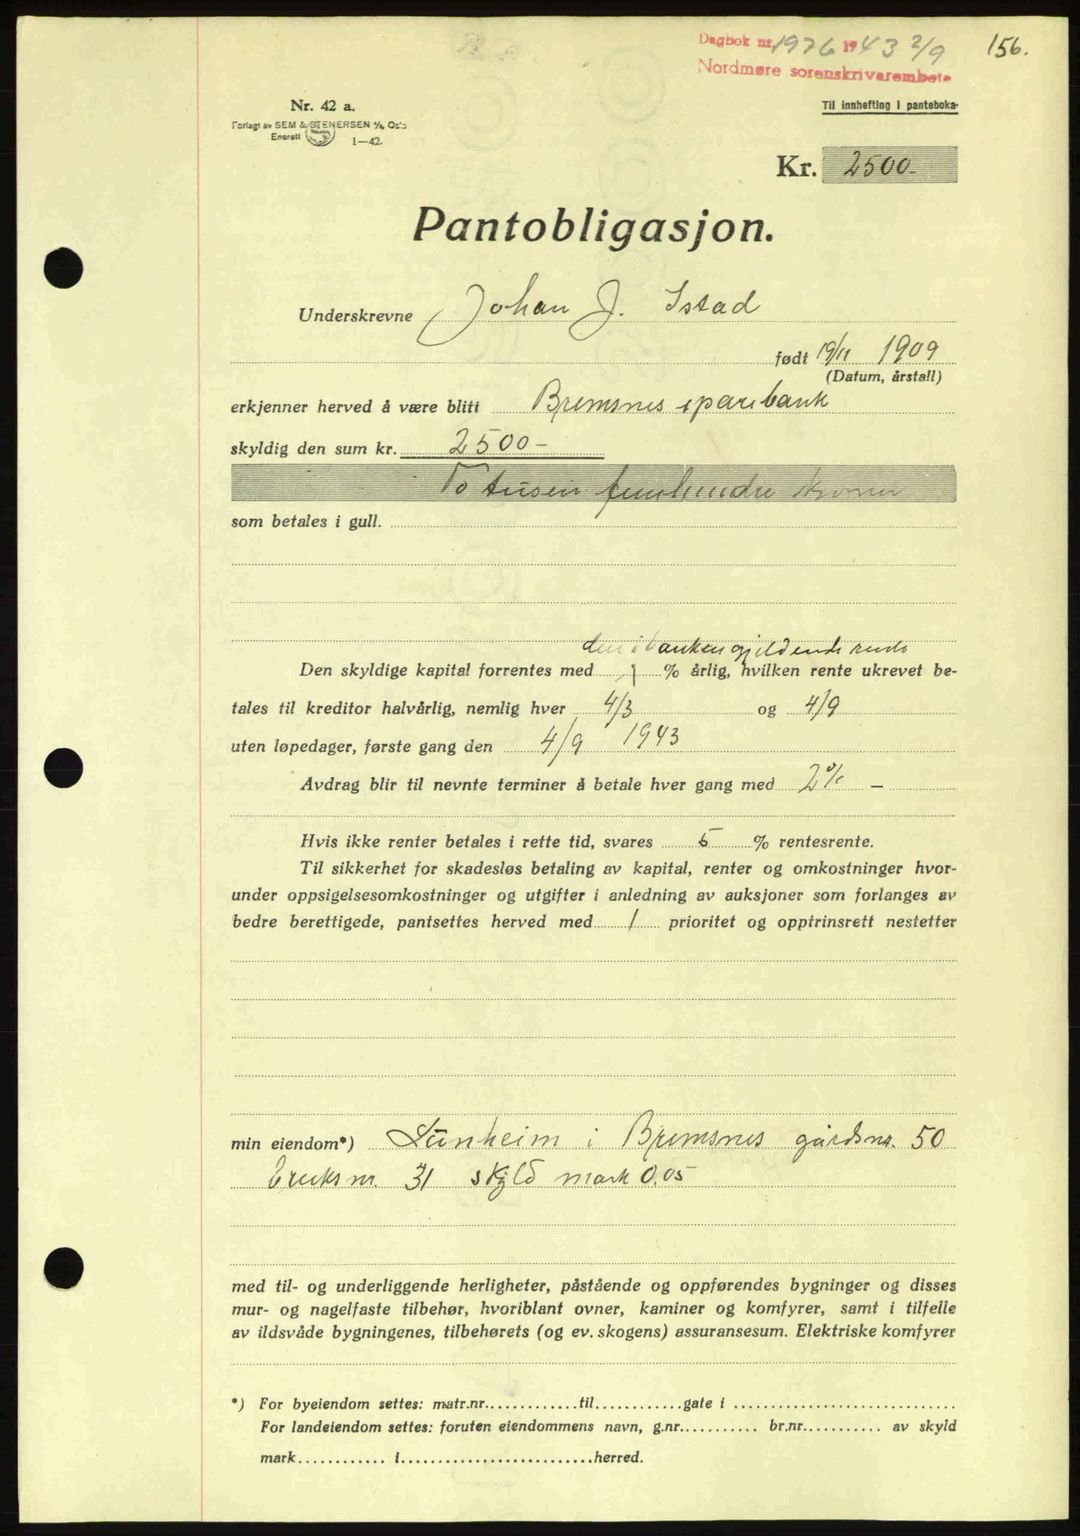 Dagbok nr. 1976 1943 2/9
156.
Nordmøre sorenskrivarembete
Nr. 42 a.
Til innhefting i panteboka.
Forlagt av SEM & STENERSEN A/S, Oslo
Enerett 1—42.
Kr. 2500-
Pantobligasjon.
Underskrevne Johan J. Istad
født 19/11 1909
(Datum, årstall)
erkjenner herved å være blitt Bremsnes sparebank
skyldig den sum kr. 2500-
To tusen femhundre kroner
som betales i gull.
den i banken gjeldende rente
Den skyldige kapital forrentes med % årlig, hvilken rente ukrevet be-
tales til kreditor halvårlig, nemlig hver 4/3 og 4/9
uten løpedager, første gang den 4/9 1943
Avdrag blir til nevnte terminer å betale hver gang med 2% —
Hvis ikke renter betales i rette tid, svares 5 % rentesrente.
Til sikkerhet for skadesløs betaling av kapital, renter og omkostninger hvor-
under oppsigelsesomkostninger og utgifter i anledning av auksjoner som forlanges av
bedre berettigede, pantsettes herved med 1 prioritet og opptrinsrett nestetter
min eiendom*) Lünheim i Bremsnes gårdsnr. 50
bruksnr. 31 skyld mark 0.05
med til- og underliggende herligheter, påstående og oppførendes bygninger og disses
mur- og nagelfaste tilbehør, hvoriblant ovner, kaminer og komfyrer, samt i tilfelle
av ildsvåde bygningenes, tilbehørets (og ev. skogens) assuransesum. Elektriske komfyrer
*) For byeiendom settes: matr.nr............til............gate i ..............................
For landeiendom settes: foruten eiendommens navn, g.nr........... br.nr........... av skyld
mark............ i..............................herred.